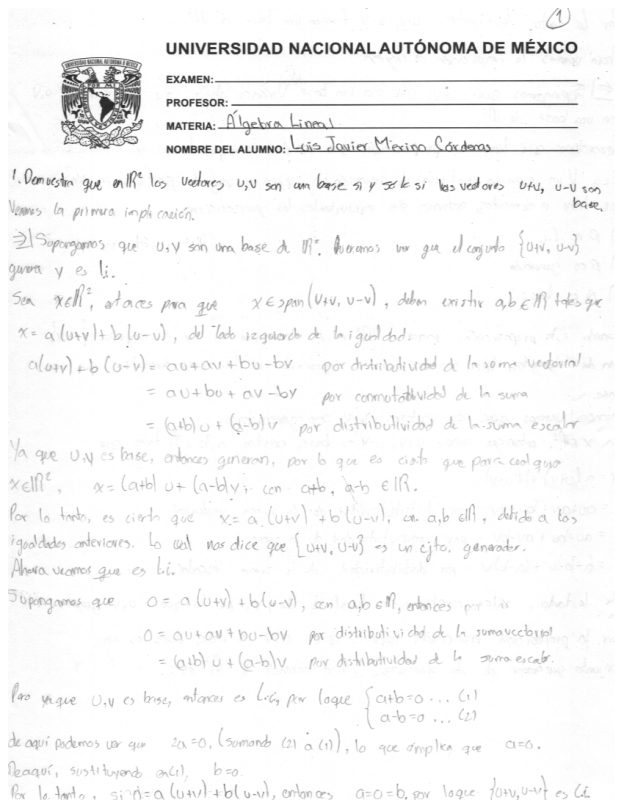 1
UNIVERSIDAD NACIONAL AUTÓNOMA DE MÉXICO
EXAMEN:
PROFESOR:
MATERIA: Álgebra Lineal
NOMBRE DEL ALUMNO: Luis Javier Merino Cárdenas
1. Demuestra que en ℝ² los vectores u,v son una base si y solo si los vectores u+v, u-v son
base.
Veamos la primera implicación.
⇒| Supongamos que u,v son una base de ℝ². Queremos ver que el conjunto {u+v, u-v}
genera y es l.i.
Sea x∈ℝ², entonces para que x∈span(u+v, u-v), deben existir a,b∈ℝ tales que
x= a(u+v)+b(u-v), del lado izquierdo de la igualdad:
a(u+v)+b(u-v)= au+av+bu-bv por distributividad de la suma vectorial
= au+bu+av-bv por conmutatividad de la suma
= (a+b)u+(a-b)v por distributividad de la suma escalar
Ya que u,v es base, entonces generan, por lo que es cierto que para cualquier
x∈ℝ², x=(a+b)u+(a-b)v; con a+b, a-b ∈ℝ.
Por lo tanto, es cierto que x= a(u+v)+b(u-v), con a,b∈ℝ, debido a las
igualdades anteriores. Lo cual nos dice que {u+v, u-v} es un cjto. generador.
Ahora veamos que es l.i.
Supongamos que 0= a(u+v)+b(u-v), con a,b∈ℝ, entonces
0= au+av+bu-bv por distributividad de la suma vectorial
= (a+b)u+(a-b)v por distributividad de la suma escalar.
Pero ya que u,v es base, entonces es l.i., por lo que { a+b=0 ... (1)
a-b=0 ... (2)
de aquí podemos ver que 2a=0, (sumando (2) a (1)), lo que implica que a=0.
De aquí, sustituyendo en (1), b=0.
Por lo tanto, si 0=a(u+v)+b(u-v), entonces a=0=b, por lo que {u+v,u-v} es l.i.